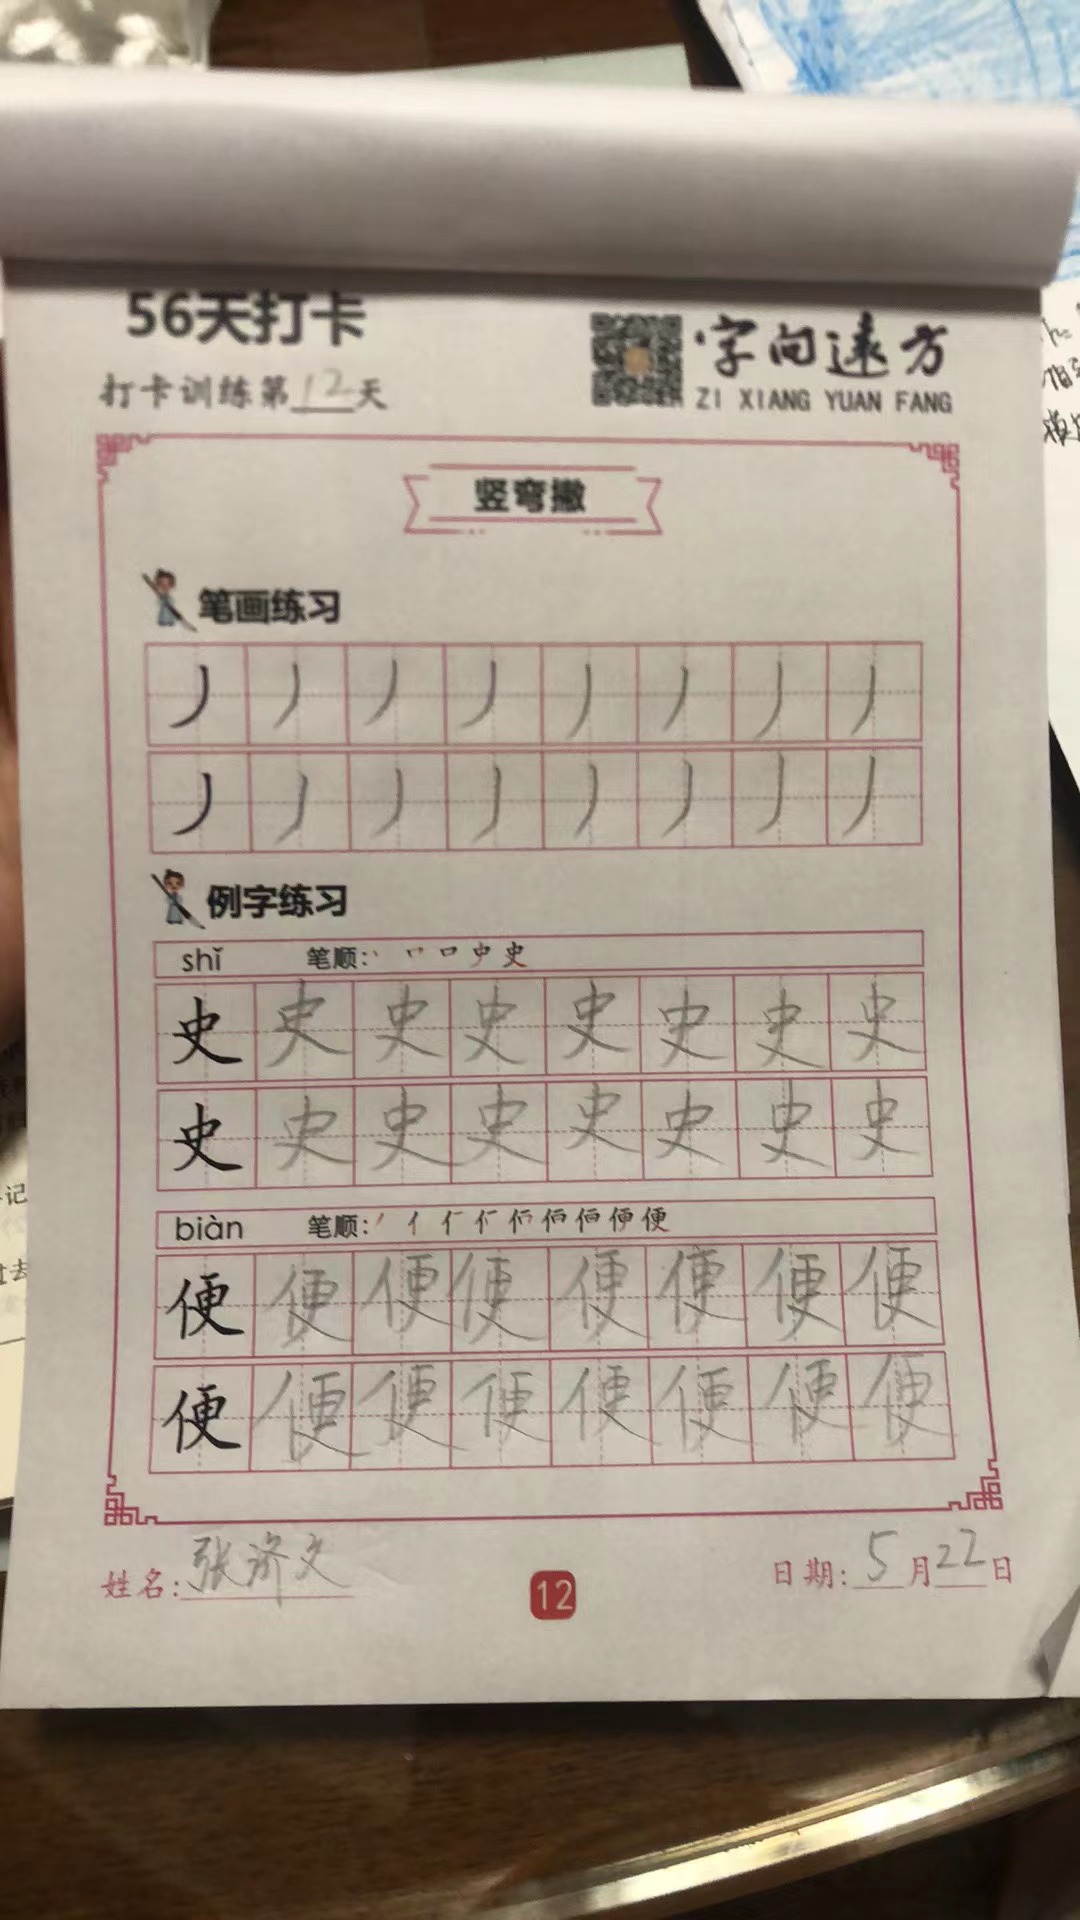 56天打卡
打卡训练第12天
字向遠方
ZI XIANG YUAN FANG
竖弯撇
笔画练习
丿丿丿丿丿丿丿丿
丿丿丿丿丿丿丿丿
例字练习
shǐ 笔顺: 丶 口 口 史 史
史史史史史史史史
史史史史史史史史
biàn 笔顺: 便
便便便便便便便便
便便便便便便便便
姓名:张济文
12
日期:5月22日